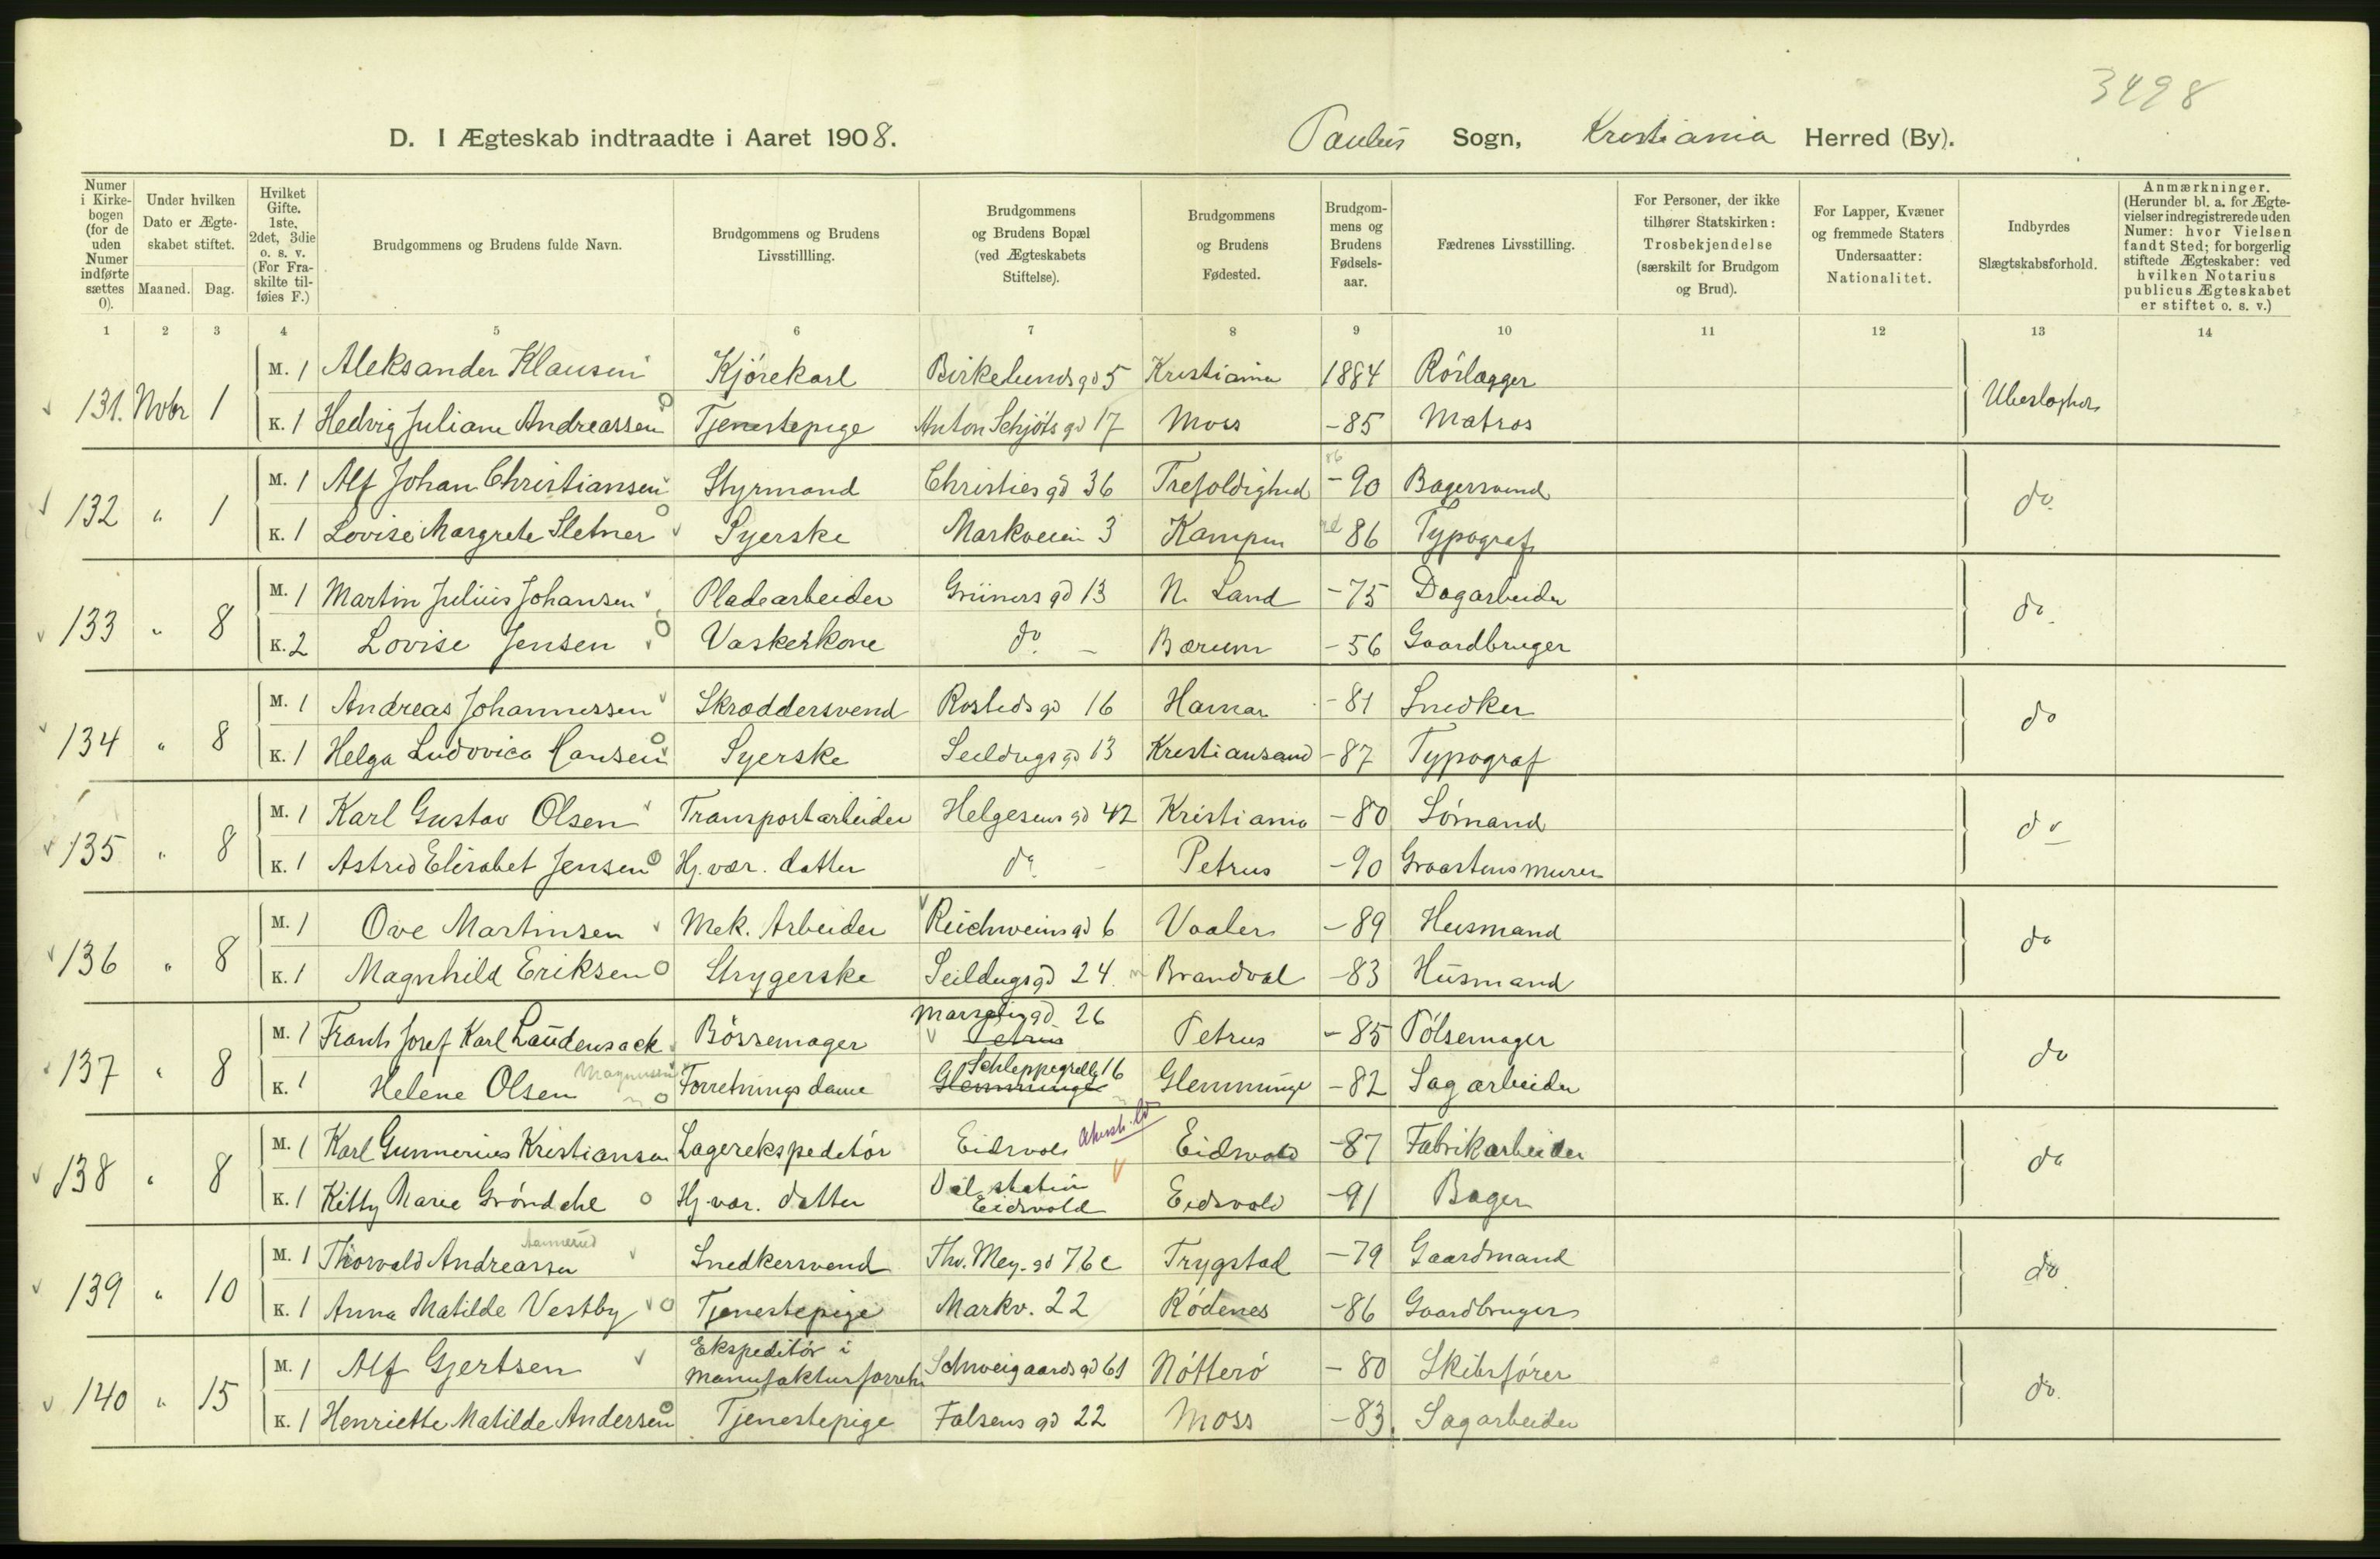 3498
D. I Ægteskab indtraadte i Aaret 1908.
Paulus Sogn, Kristiania Herred (By).
Numer i Kirkebogen (for de uden Numer indførte sættes 0).
Under hvilken Dato er Ægteskabet stiftet.
Maaned. Dag.
Hvilket Gifte. 1ste, 2det, 3die o. s. v. (For Fraskilte tilføies F.)
Brudgommens og Brudens fulde Navn.
Brudgommens og Brudens Livsstillling.
Brudgommens og Brudens Bopæl (ved Ægteskabets Stiftelse).
Brudgommens og Brudens Fødested.
Brudgommens og Brudens Fødselsaar.
Fædrenes Livsstilling.
For Personer, der ikke tilhører Statskirken: Trosbekjendelse (særskilt for Brudgom og Brud).
For Lapper, Kvæner og fremmede Staters Undersaatter: Nationalitet.
Indbyrdes Slægtskabsforhold.
Anmærkninger. (Herunder bl. a. for Ægtevielser indregistrerede uden Numer: hvor Vielsen fandt Sted; for borgerlig stiftede Ægteskaber: ved hvilken Notarius publicus Ægteskabet er stiftet o. s. v.)
1 2 3 4 5 6 7 8 9 10 11 12 13 14
131. Nobr 1 M. 1 Aleksander Klausen Kjörekarl Birkelunds gd 5 Kristiania 1884 Rörlægger Ubeslægtet
K. 1 Hedvig Juliane Andreassen Tjenestepige Anton Schjöts gd 17 Moss -85 Matros
132 " 1 M. 1 Alf Johan Christiansen Styrmand Christies gd 36 Trefoldighed -90 Bagersvend do.
K. 1 Lovise Margrete Sletner Syerske Markveien 3 Kampen 86 Typograf
133 " 8 M. 1 Martin Julius Johansen Pladearbeider Grüners gd 13 N. Land -75 Dagarbeider do.
K. 2 Lovise Jensen Vaskerkone do. - Bærum -56 Gaardbruger
134 " 8 M. 1 Andreas Johannessen Skræddersvend Rosteds gd 16 Hamar -81 Snedker do
K. 1 Helga Ludovica Hansen Syerske Seildugs gd 13 Kristiansand -87 Typograf
135 " 8 M. 1 Karl Gustav Olsen Transportarbeider Helgesens gd 42 Kristiania -80 Sömand do
K. 1 Astrid Elisabet Jensen Hj. vær. datter do. - Petrus -90 Graastensmurer
136 " 8 M. 1 Ove Martinsen Mek. Arbeider Reichweins gd 6 Vaaler -89 Husmand do
K. 1 Magnhild Eriksen Strygerske Seildugs gd 24 Brandval -83 Husmand
137 " 8 M. 1 Frants Josef Karl Laudensack Bössemager Marselis gd 26 Petrus Petrus -85 Pölsemager do
K. 1 Helene Olsen Magnussen Forretningsdame Schleppegrells 16 Glemminge Glemminge -82 Sagarbeider
138 " 8 M. 1 Karl Gunnerius Kristiansen Lagerekspeditör Eidsvold Eidsvold -87 Fabrikarbeider do
K. 1 Kitty Marie Gröndahl Hj. vær. datter Dal station Eidsvold Eidsvold -91 Bager
139 " 10 M. 1 Thorvald Andreassen Snedkersvend Thv. Mey. gd 76c Trygstad -79 Gaardmand do
K. 1 Anna Matilde Vestby Tjenestepige Markv. 22 Rödenes -86 Gaardbruger
140 " 15 M. 1 Alf Gjertsen Ekspeditör i Manufakturforretn Schweigaards gd 61 Nötterö -80 Skibsförer do.
K. 1 Henriette Matilde Andersen Tjenestepige Falsens gd 22 Moss -83 Sagarbeider